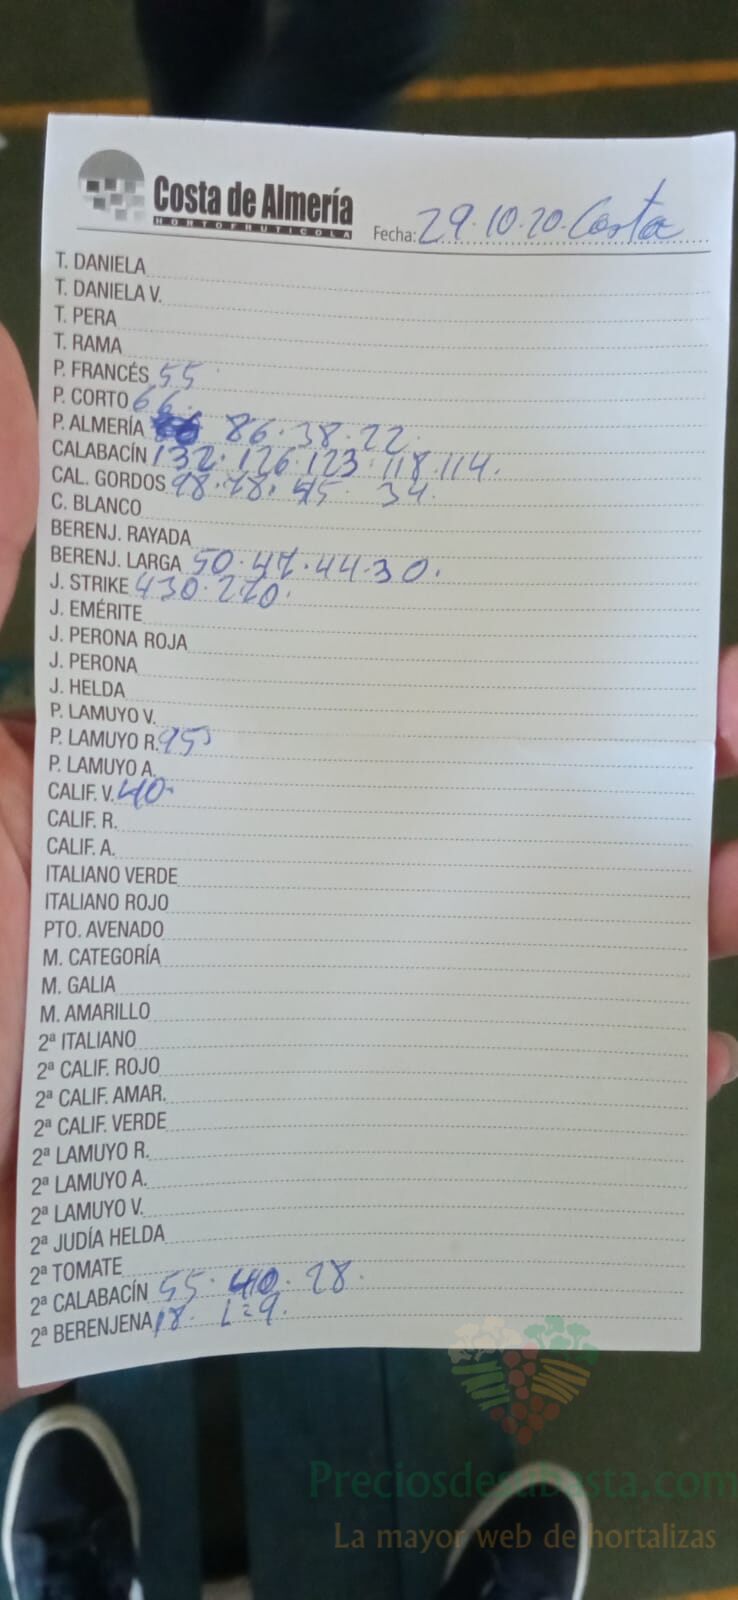 Costa de Almería
HORTOFRUTICOLA
Fecha: 29.10.20. Costa
T. DANIELA
T. DANIELA V.
T. PERA
T. RAMA
P. FRANCÉS 55
P. CORTO 66.
P. ALMERÍA 86.38.22.
CALABACÍN 132.126.123.118.114.
CAL. GORDOS 98.78.45. 34.
C. BLANCO
BERENJ. RAYADA
BERENJ. LARGA 50.47.44.30.
J. STRIKE 430.270.
J. EMÉRITE
J. PERONA ROJA
J. PERONA
J. HELDA
P. LAMUYO V.
P. LAMUYO R. 95
P. LAMUYO A.
CALIF. V. 40.
CALIF. R.
CALIF. A.
ITALIANO VERDE
ITALIANO ROJO
PTO. AVENADO
M. CATEGORÍA
M. GALIA
M. AMARILLO
2ª ITALIANO
2ª CALIF. ROJO
2ª CALIF. AMAR.
2ª CALIF. VERDE
2ª LAMUYO R.
2ª LAMUYO A.
2ª LAMUYO V.
2ª JUDÍA HELDA
2ª TOMATE
2ª CALABACÍN 55.40.28.
2ª BERENJENA 18. L=9.
Preciosdesubasta.com
La mayor web de hortalizas